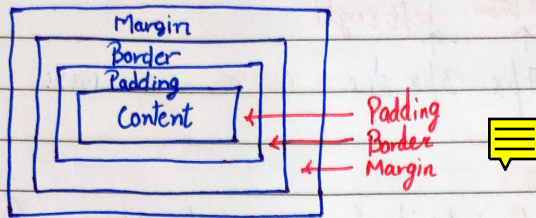 Margin
Border
Padding
Content
Padding
Border
Margin